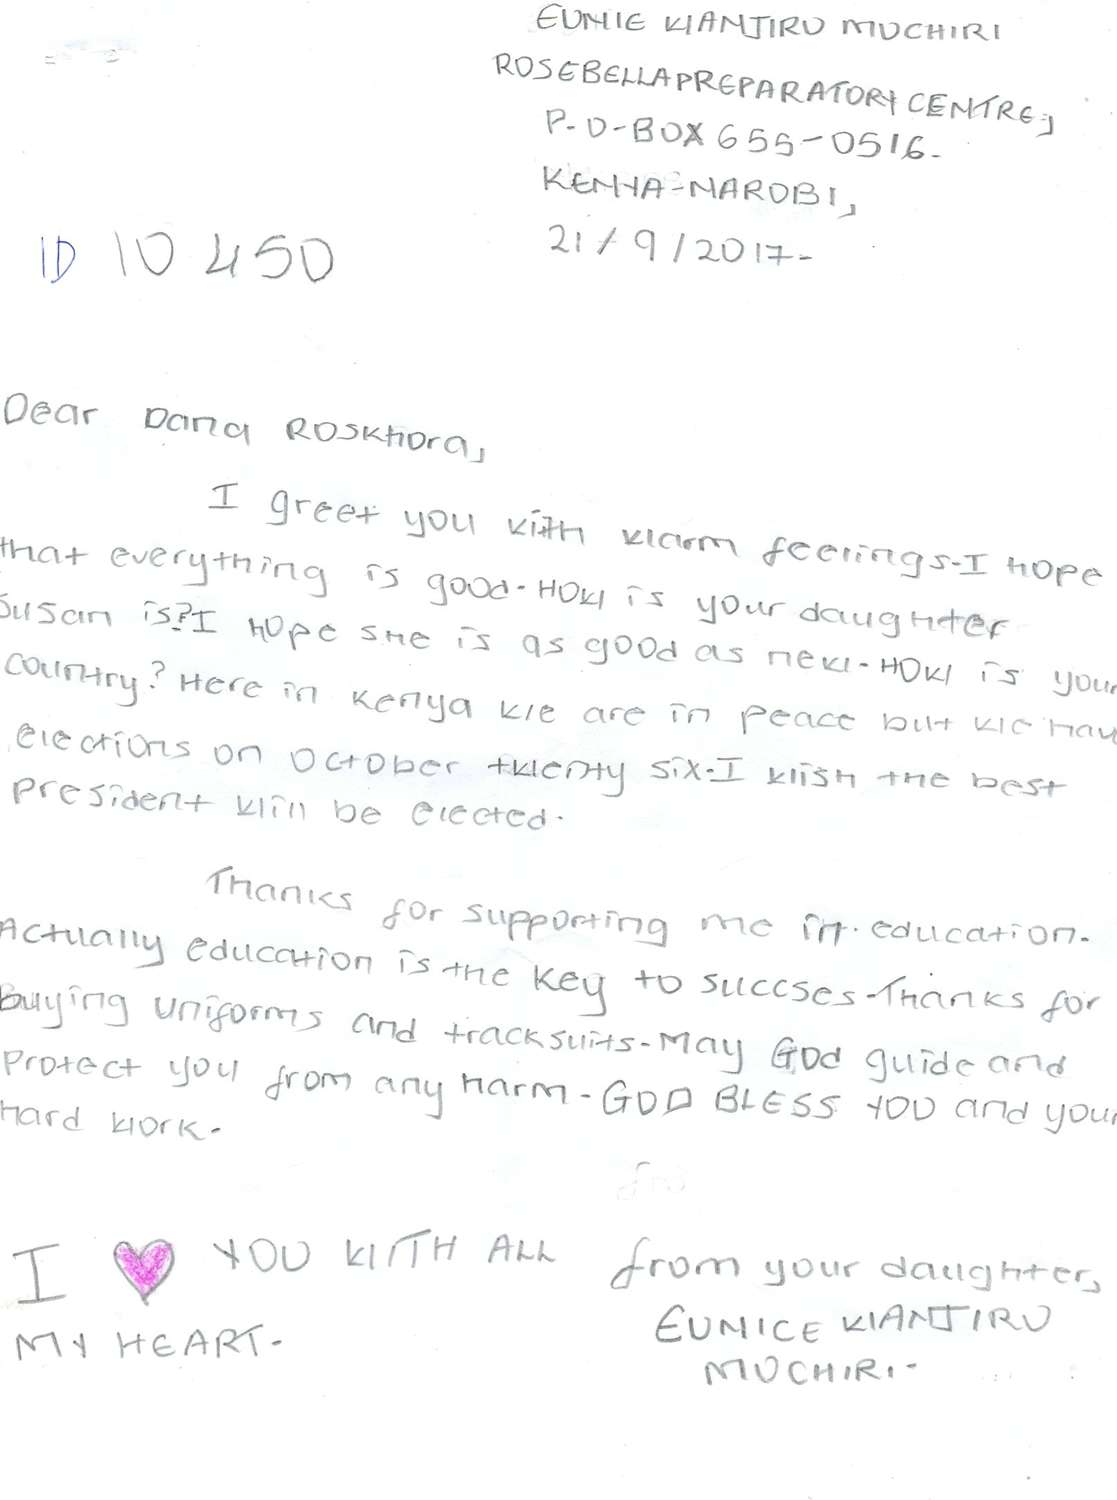 EUNIE WANJIRU MUCHIRI
ROSEBELLA PREPARATORY CENTRE,
P-O-BOX 655-0516-
KENYA-NAROBI,
21/9/2017-
ID 10450
Dear Dana ROSKHORA,
I greet you with warm feelings-I hope
that everything is good-How is your daughter
Susan is?I hope she is as good as new-How is your
country? Here in Kenya we are in peace but we hav
elections on October twenty six-I wish the best
president will be elected.
Thanks for supporting me in education-
Actually education is the key to succses-Thanks for
buying uniforms and tracksuits-May God guide and
protect you from any harm-GOD BLESS YOU and your
hard work-
I YOU WITH ALL
MY HEART-
from your daughter,
EUNICE WANJIRU
MUCHIRI-